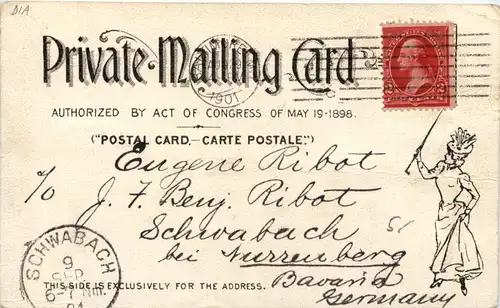 DIA
Private Mailing Card
1901
AUTHORIZED BY ACT OF CONGRESS OF MAY 19-1898.
("POSTAL CARD,—CARTE POSTALE")
Eugene Ribot
c/o J. F. Benj. Ribot
Schwabach
bei Nurrenberg
Bavaria
Germany
SCHWABACH
9
SEP
6-7 Nm.
01
THIS SIDE IS EXCLUSIVELY FOR THE ADDRESS.